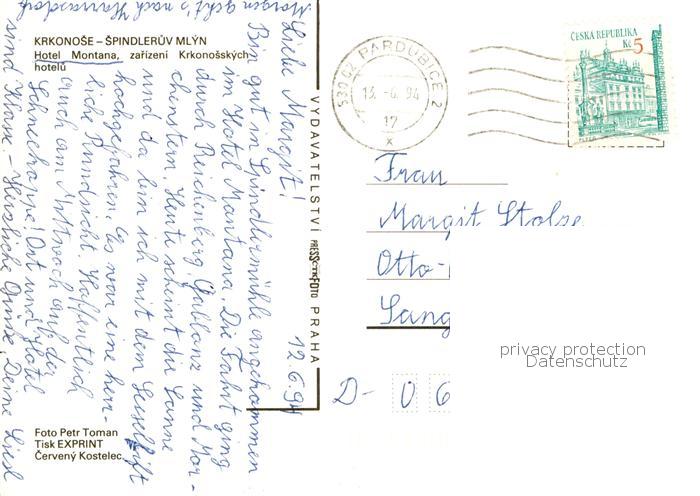 Morgen geht's nach Harrasdorf
KRKONOŠE – ŠPINDLERŮV MLÝN
Hotel Montana, zařízení Krkonošských
hotelů
12.6.94
Liebe Margit!
Bin gut in Spindlermühle angekommen
im Hotel Montana. Die Fahrt ging
durch Reichenberg, Gablonz und Mor-
chenstern. Heute scheint die Sonne
und da bin ich mit dem Sessellift
hochgefahren. Es war eine herr-
liche Rundsicht. Hoffentlich
auch am Mittwoch auf der
Schneekoppe! Ort und Hotel
sind Klasse. - Herzliche Grüsse, Deine Liesl
Foto Petr Toman
Tisk EXPRINT
Červený Kostelec
VYDAVATELSTVÍ PRESSFOTO PRAHA
530 02 PARDUBICE 2
13.-6.94
17
x
ČESKÁ REPUBLIKA
Kč 5
Frau
Margit Stolze
Otto-
Sang
D- 06
privacy protection
Datenschutz